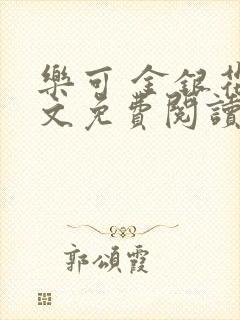 樂可 金銀花
文免費閱讀
郭頌霞